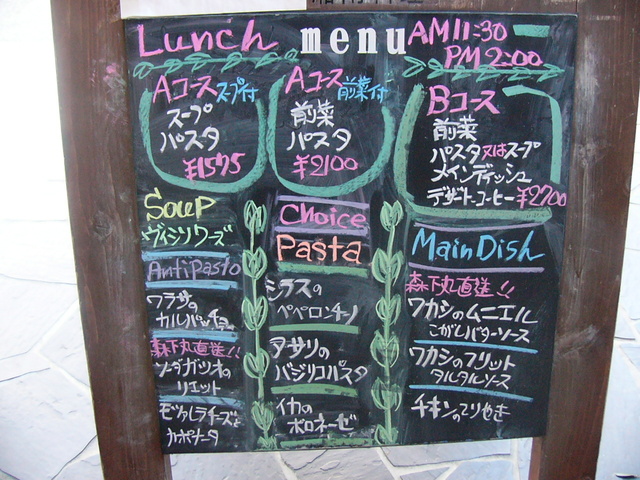 Lunch menu AM11:30
PM2:00
Aコース スープ付
スープ
パスタ
¥1575
Aコース 前菜付
前菜
パスタ
¥2100
Bコース
前菜
パスタ又はスープ
メインディッシュ
デザート・コーヒー ¥2700
Soup
ヴィシソワーズ
AntiPasto
ワラサの
カルパッチョ
森下丸直送!!
ソーダガツオの
リエット
モッツァレラチーズと
カポナータ
Choice
Pasta
シラスの
ペペロンチーノ
アサリの
バジリコパスタ
イカの
ボロネーゼ
Main Dish
森下丸直送!!
ワカシのムニエル
こがしバターソース
ワカシのフリット
タルタルソース
チキンのてりやき